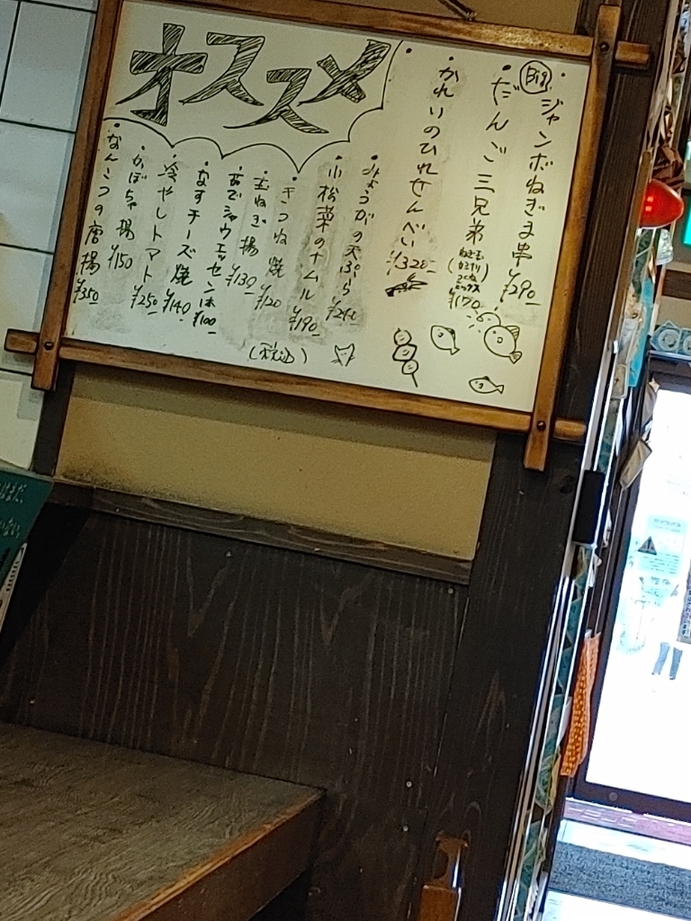 オススメ
Big
ジャンボねぎま串 ¥290
だんご三兄弟
¥170
かれいのひれせんべい ¥320
しょうがの天ぷら ¥240
小松菜のナムル ¥190
きつね焼 ¥120
玉ねぎ揚 ¥130
茹でシャウエッセン1本 ¥100
なすチーズ焼 ¥140
冷やしトマト ¥250
かぼちゃ揚 ¥150
なんこつの唐揚 ¥350
(税込)